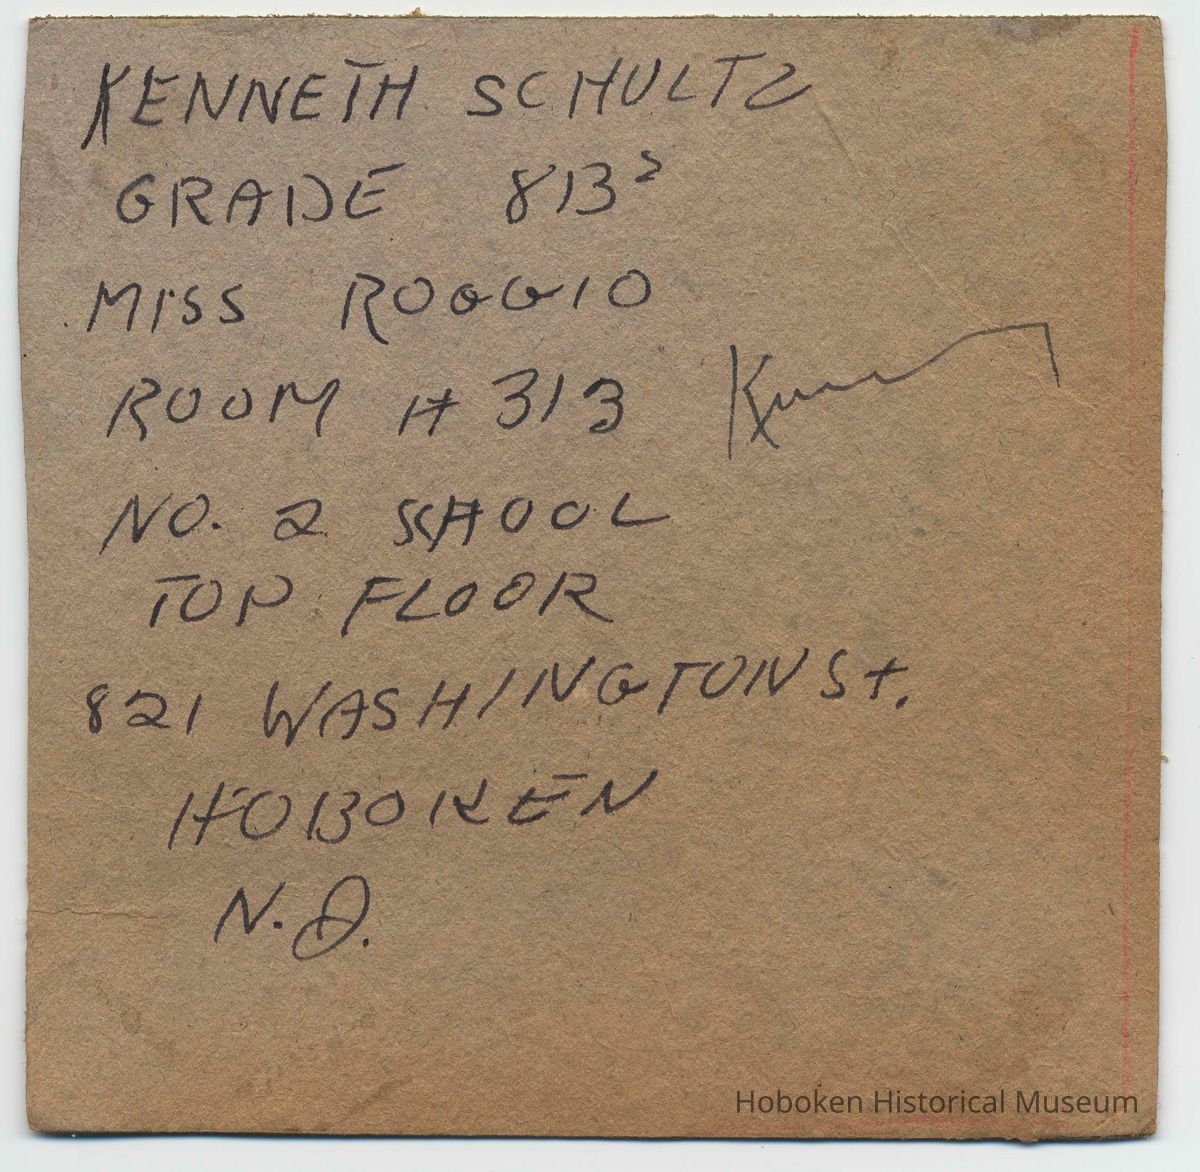 KENNETH SCHULTZ
GRADE 8B³
MISS ROGGIO
ROOM # 313
NO. 2 SCHOOL
TOP FLOOR
821 WASHINGTON St.
HOBOKEN
N.J.
Hoboken Historical Museum